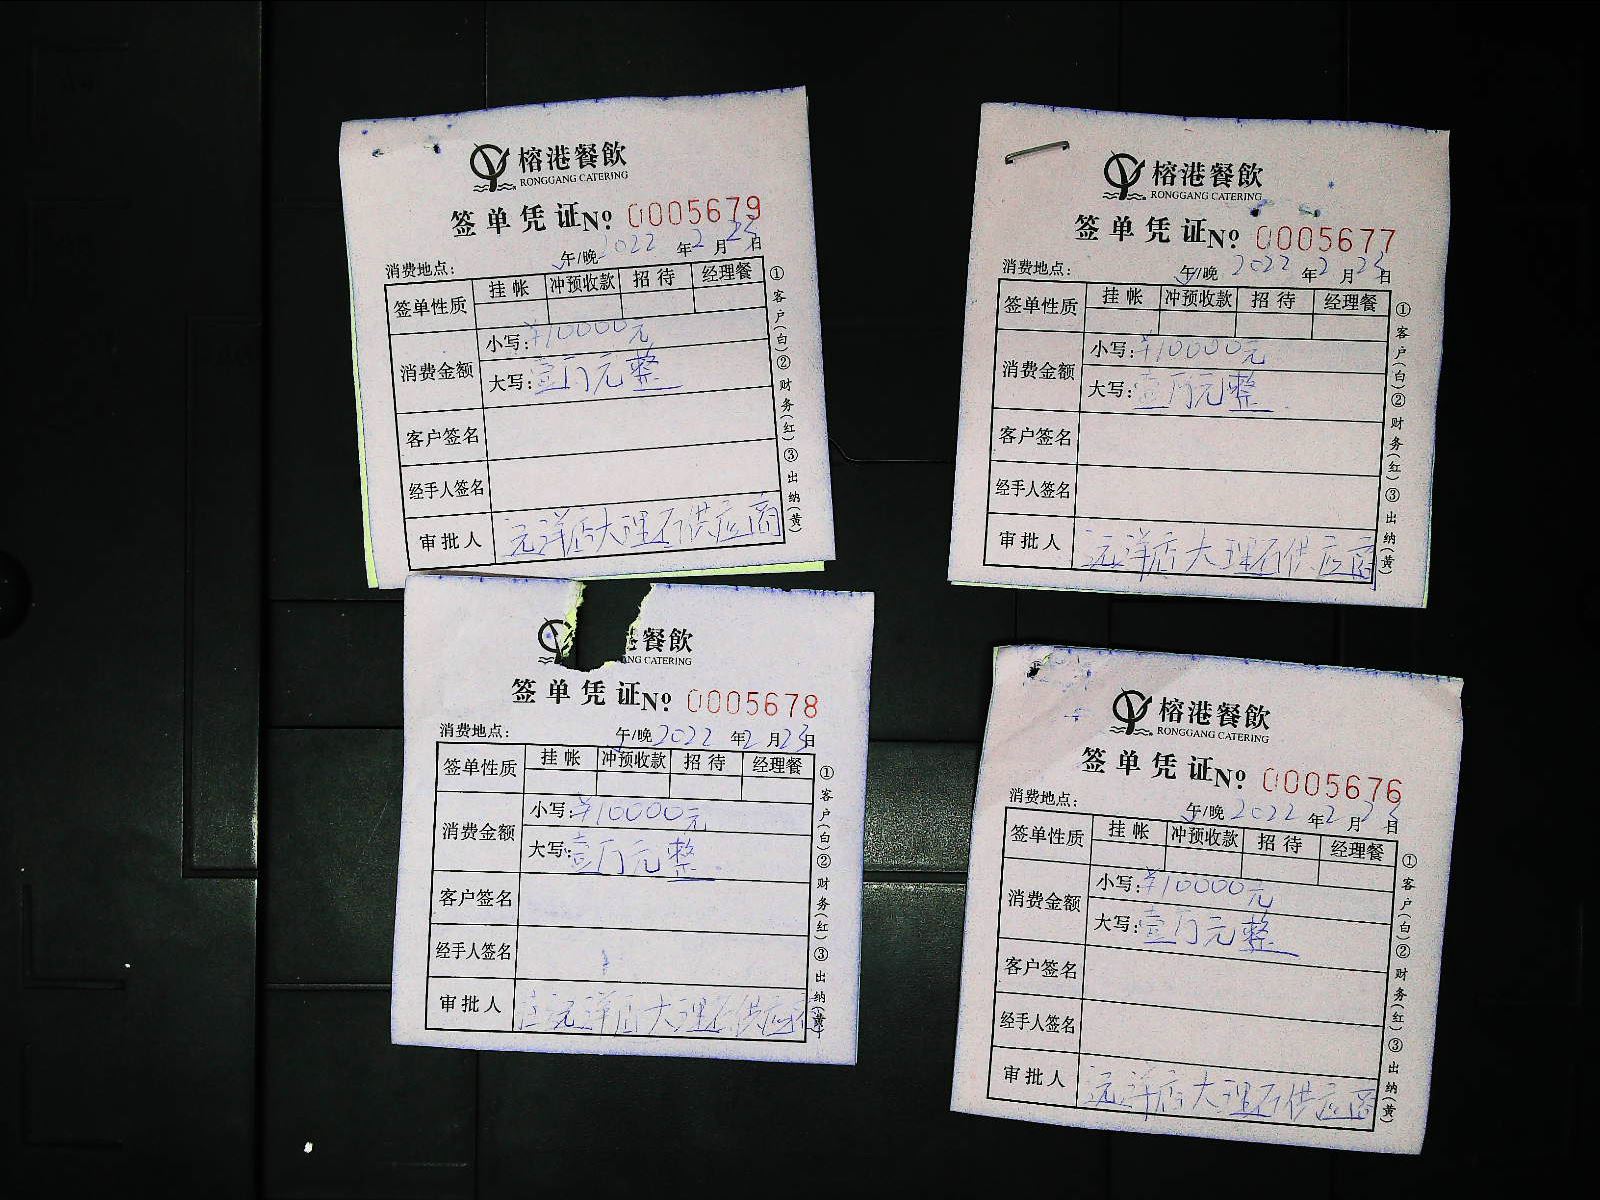 榕港餐飲
RONGGANG CATERING
签单凭证No. 0005679
消费地点: 午/晚 2022年2月23日
签单性质 挂帐 冲预收款 招待 经理餐
消费金额 小写:¥10000元
大写:壹万元整
客户签名
经手人签名
审批人 远洋店大理石供应商
①客户(白)②财务(红)③出纳(黄)
榕港餐飲
RONGGANG CATERING
签单凭证No. 0005677
消费地点: 午/晚 2022年2月23日
签单性质 挂帐 冲预收款 招待 经理餐
消费金额 小写:¥10000元
大写:壹万元整
客户签名
经手人签名
审批人 远洋店大理石供应商
①客户(白)②财务(红)③出纳(黄)
餐飲
NG CATERING
签单凭证No. 0005678
消费地点: 午/晚 2022年2月23日
签单性质 挂帐 冲预收款 招待 经理餐
消费金额 小写:¥10000元
大写:壹万元整
客户签名
经手人签名
审批人 远洋店大理石供应商
①客户(白)②财务(红)③出纳(黄)
榕港餐飲
RONGGANG CATERING
签单凭证No. 0005676
消费地点: 午/晚 2022年2月23日
签单性质 挂帐 冲预收款 招待 经理餐
消费金额 小写:¥10000元
大写:壹万元整
客户签名
经手人签名
审批人 远洋店大理石供应商
①客户(白)②财务(红)③出纳(黄)